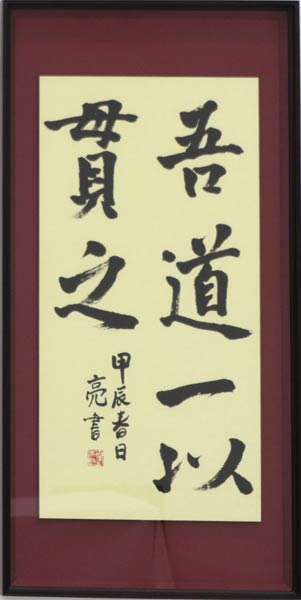 吾道一以
貫之
甲辰春日
亮書